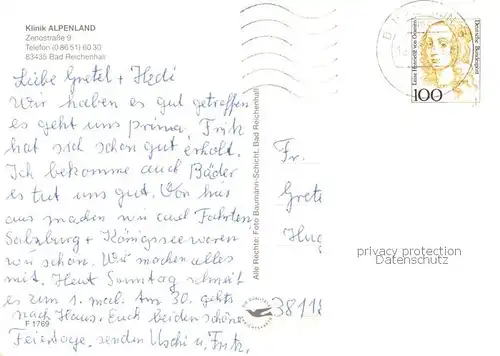 Klinik ALPENLAND
Zenostraße 9
Telefon (0 86 51) 60 30
83435 Bad Reichenhall
Liebe Gretel + Hedi
Wir haben es gut getroffen
es geht uns prima, Fritz
hat sich schon gut erholt.
Ich bekomme auch Bäder
es tut uns gut. Von hier
aus machen wir auch Fahrten,
Salzburg + Königssee waren
wir schon. Wir machen alles
mit. Heut Sonntag schneit
es zum 1. mal. Am 30. gehts
nach Haus. Euch beiden schöne
Feiertage, senden Uschi u. Fritz.
F 1769
Alle Rechte: Foto Baumann-Schicht, Bad Reichenhall
Deutsche Bundespost
Luise Henriette von Oranien
100
Fr.
Grete
Hug
privacy protection
Datenschutz
38118